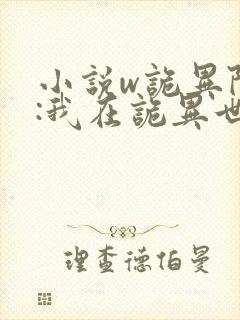 小説w詭異阝
:我在詭異世
理查德伯曼